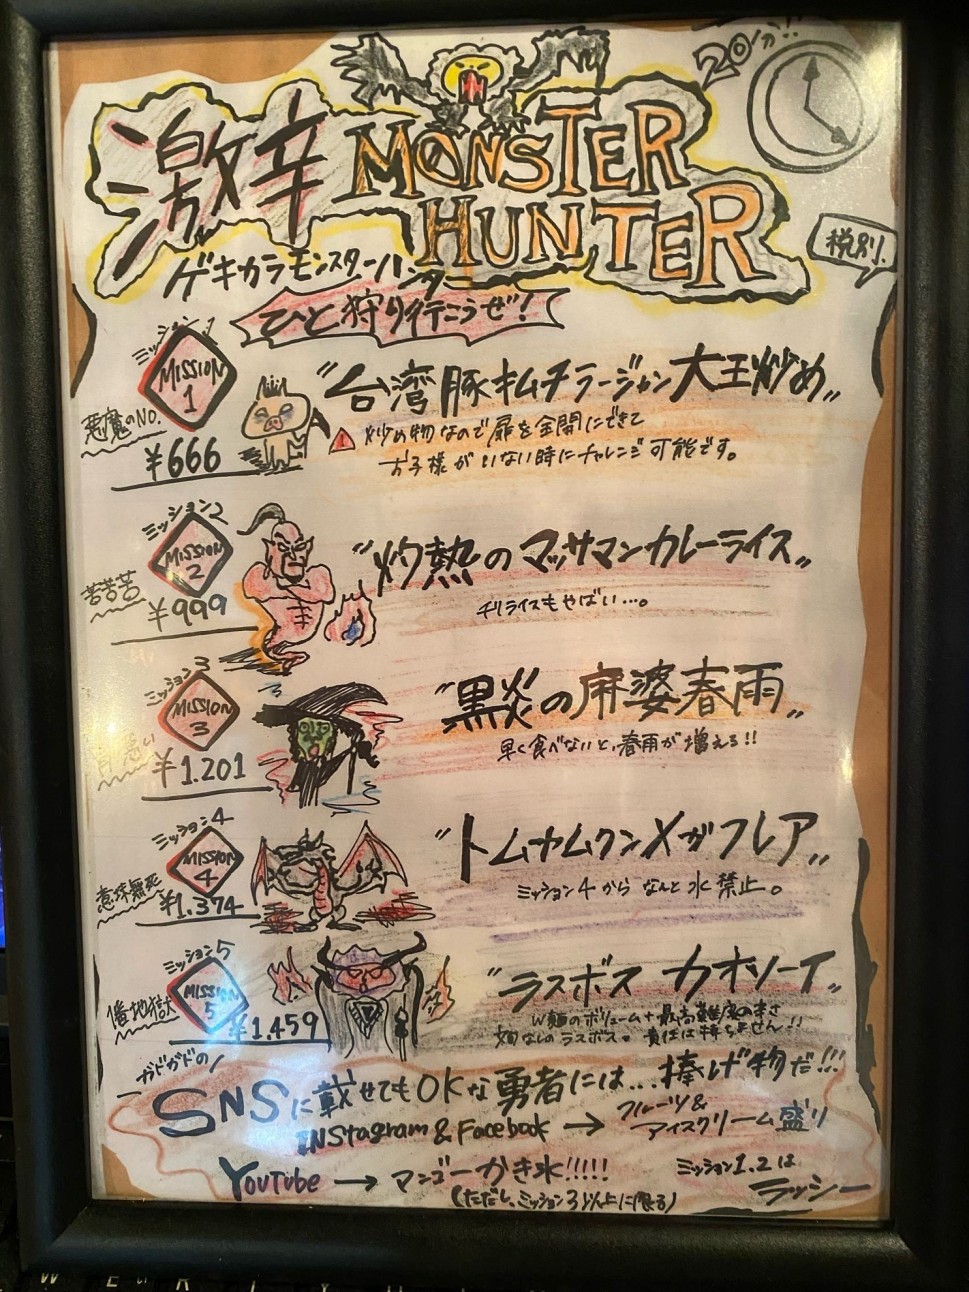 20分!!
激辛 MONSTER
HUNTER
税別
ゲキカラモンスターハンター
ひと狩り行こうぜ!
ミッション1
MISSION
1
悪魔のNO.
¥666
"台湾豚キムチラージャン大王炒め"
炒め物なので扉を全開にできて
お子様がいない時にチャレンジ可能です。
ミッション2
MISSION
2
苦苦苦
¥999
"灼熱のマッサマンカレーライス"
チリライスもやばい…。
ミッション3
MISSION
3
¥1.201
"黒炎の麻婆春雨"
早く食べないと、春雨が増える!!
ミッション4
MISSION
4
¥1.374
"トムヤムクンメガフレア"
ミッション4からなんと水禁止。
ミッション5
MISSION
5
¥1.459
"ラスボス カオソーイ"
W麺のボリューム+最高難度の辛さ
文句なしのラスボス。責任は持ちません!!
ガドガドの
SNSに載せてもOKな勇者には…捧げ物だ!!!
INStagram & Facebook → フルーツ&
アイスクリーム盛り
YouTube → マンゴーかき氷!!!!!
(ただし、ミッション3以上に限る)
ミッション1.2は
ラッシー